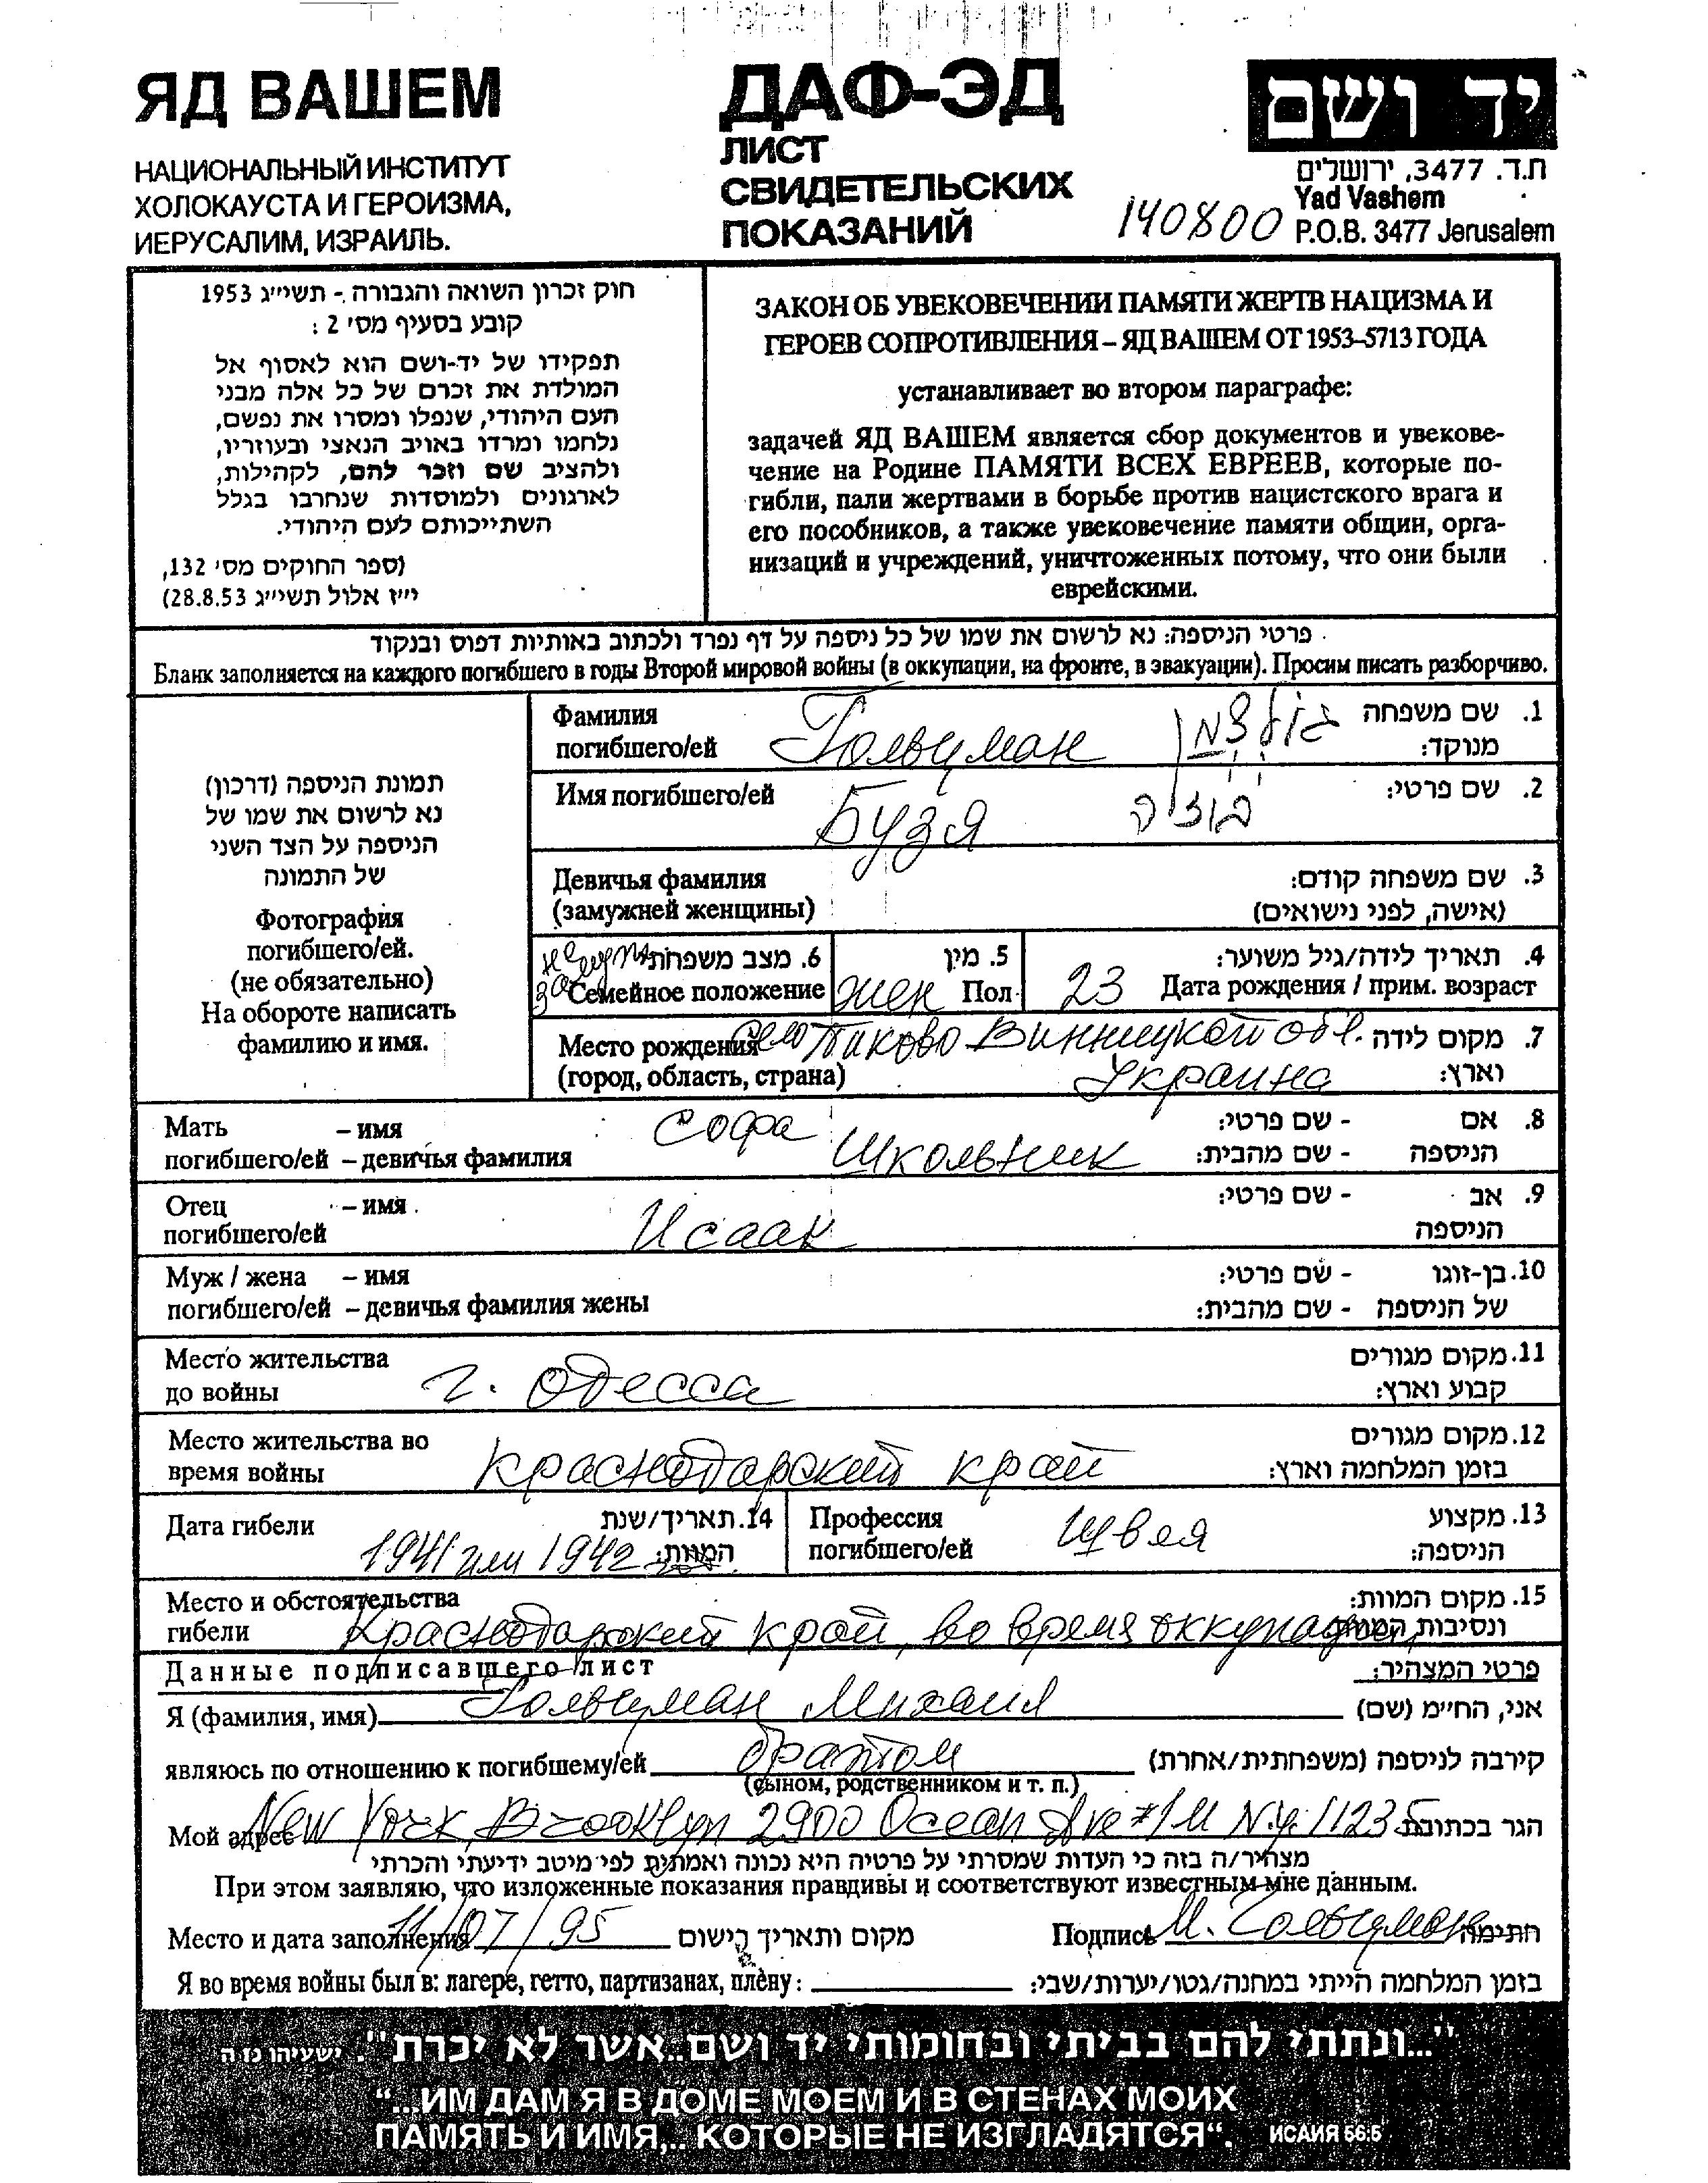 ЯД ВАШЕМ
НАЦИОНАЛЬНЫЙ ИНСТИТУТ
ХОЛОКАУСТА И ГЕРОИЗМА,
ИЕРУСАЛИМ, ИЗРАИЛЬ.
ДАФ-ЭД
ЛИСТ
СВИДЕТЕЛЬСКИХ
ПОКАЗАНИЙ
140800
יד ושם
ת.ד. 3477, ירושלים
Yad Vashem
P.O.B. 3477 Jerusalem
חוק זכרון השואה והגבורה - תשי״ג 1953
קובע בסעיף מס׳ 2 :
תפקידו של יד-ושם הוא לאסוף אל
המולדת את זכרם של כל אלה מבני
העם היהודי, שנפלו ומסרו את נפשם,
נלחמו ומרדו באויב הנאצי ובעוזריו,
ולהציב שם וזכר להם, לקהילות,
לארגונים ולמוסדות שנחרבו בגלל
השתייכותם לעם היהודי.
(ספר החוקים מס׳ 132,
י״ז אלול תשי״ג 28.8.53)
ЗАКОН ОБ УВЕКОВЕЧЕНИИ ПАМЯТИ ЖЕРТВ НАЦИЗМА И
ГЕРОЕВ СОПРОТИВЛЕНИЯ – ЯД ВАШЕМ ОТ 1953–5713 ГОДА
устанавливает во втором параграфе:
задачей ЯД ВАШЕМ является сбор документов и увекове-
чение на Родине ПАМЯТИ ВСЕХ ЕВРЕЕВ, которые по-
гибли, пали жертвами в борьбе против нацистского врага и
его пособников, а также увековечение памяти общин, орга-
низаций и учреждений, уничтоженных потому, что они были
еврейскими.
פרטי הניספה: נא לרשום את שמו של כל ניספה על דף נפרד ולכתוב באותיות דפוס ובנקוד
Бланк заполняется на каждого погибшего в годы Второй мировой войны (в оккупации, на фронте, в эвакуации). Просим писать разборчиво.
תמונת הניספה (דרכון)
נא לרשום את שמו של
הניספה על הצד השני
של התמונה
Фотография
погибшего/ей.
(не обязательно)
На обороте написать
фамилию и имя.
Фамилия
погибшего/ей Гольцман גולצמן
1. שם משפחה
מנוקד:
Имя погибшего/ей Бузя בוזיה 2. שם פרטי:
Девичья фамилия 3. שם משפחה קודם:
(замужней женщины) (אישה, לפני נישואים)
не замуж. 6. מצב משפחתי 5. מין 4. תאריך לידה/גיל משוער:
Семейное положение жен Пол 23 Дата рождения / прим. возраст
Место рождения село Пиково Винницкой обл. 7. מקום לידה
(город, область, страна) Украина וארץ:
Мать – имя Софа 8. אם - שם פרטי:
погибшего/ей – девичья фамилия Школьник הניספה - שם מהבית:
Отец – имя 9. אב - שם פרטי:
погибшего/ей Исаак הניספה
Муж / жена – имя 10. בן-זוגו - שם פרטי:
погибшего/ей – девичья фамилия жены של הניספה - שם מהבית:
Место жительства 11. מקום מגורים
до войны г. Одесса קבוע וארץ:
Место жительства во 12. מקום מגורים
время войны Краснодарский край בזמן המלחמה וארץ:
Дата гибели 14. תאריך/שנת
1941 или 1942 המוות:
Профессия 13. מקצוע
погибшего/ей Швея הניספה:
Место и обстоятельства 15. מקום המוות:
гибели Краснодарский край, во время оккупации ונסיבות המוות
Данные подписавшего лист פרטי המצהיר:
Я (фамилия, имя) Гольцман Михаил אני, החי״מ (שם)
являюсь по отношению к погибшему/ей братом קירבה לניספה (משפחתית/אחרת)
(сыном, родственником и т. п.)
Мой адрес New York, Brooklyn 2900 Ocean Ave #1M N.Y. 11235 הגר בכתובת
מצהיר/ה בזה כי העדות שמסרתי על פרטיה היא נכונה ואמתית לפי מיטב ידיעתי והכרתי
При этом заявляю, что изложенные показания правдивы и соответствуют известным мне данным.
Место и дата заполнения 11/07/95 מקום ותאריך רישום Подпись М. Гольцман חתימה
Я во время войны был в: лагере, гетто, партизанах, плену: בזמן המלחמה הייתי במחנה/גטו/יערות/שבי:
"...ונתתי להם בביתי ובחומותי יד ושם...אשר לא יכרת". ישעיהו נו ה
“...ИМ ДАМ Я В ДОМЕ МОЕМ И В СТЕНАХ МОИХ
ПАМЯТЬ И ИМЯ,.. КОТОРЫЕ НЕ ИЗГЛАДЯТСЯ“. ИСАИЯ 56:5